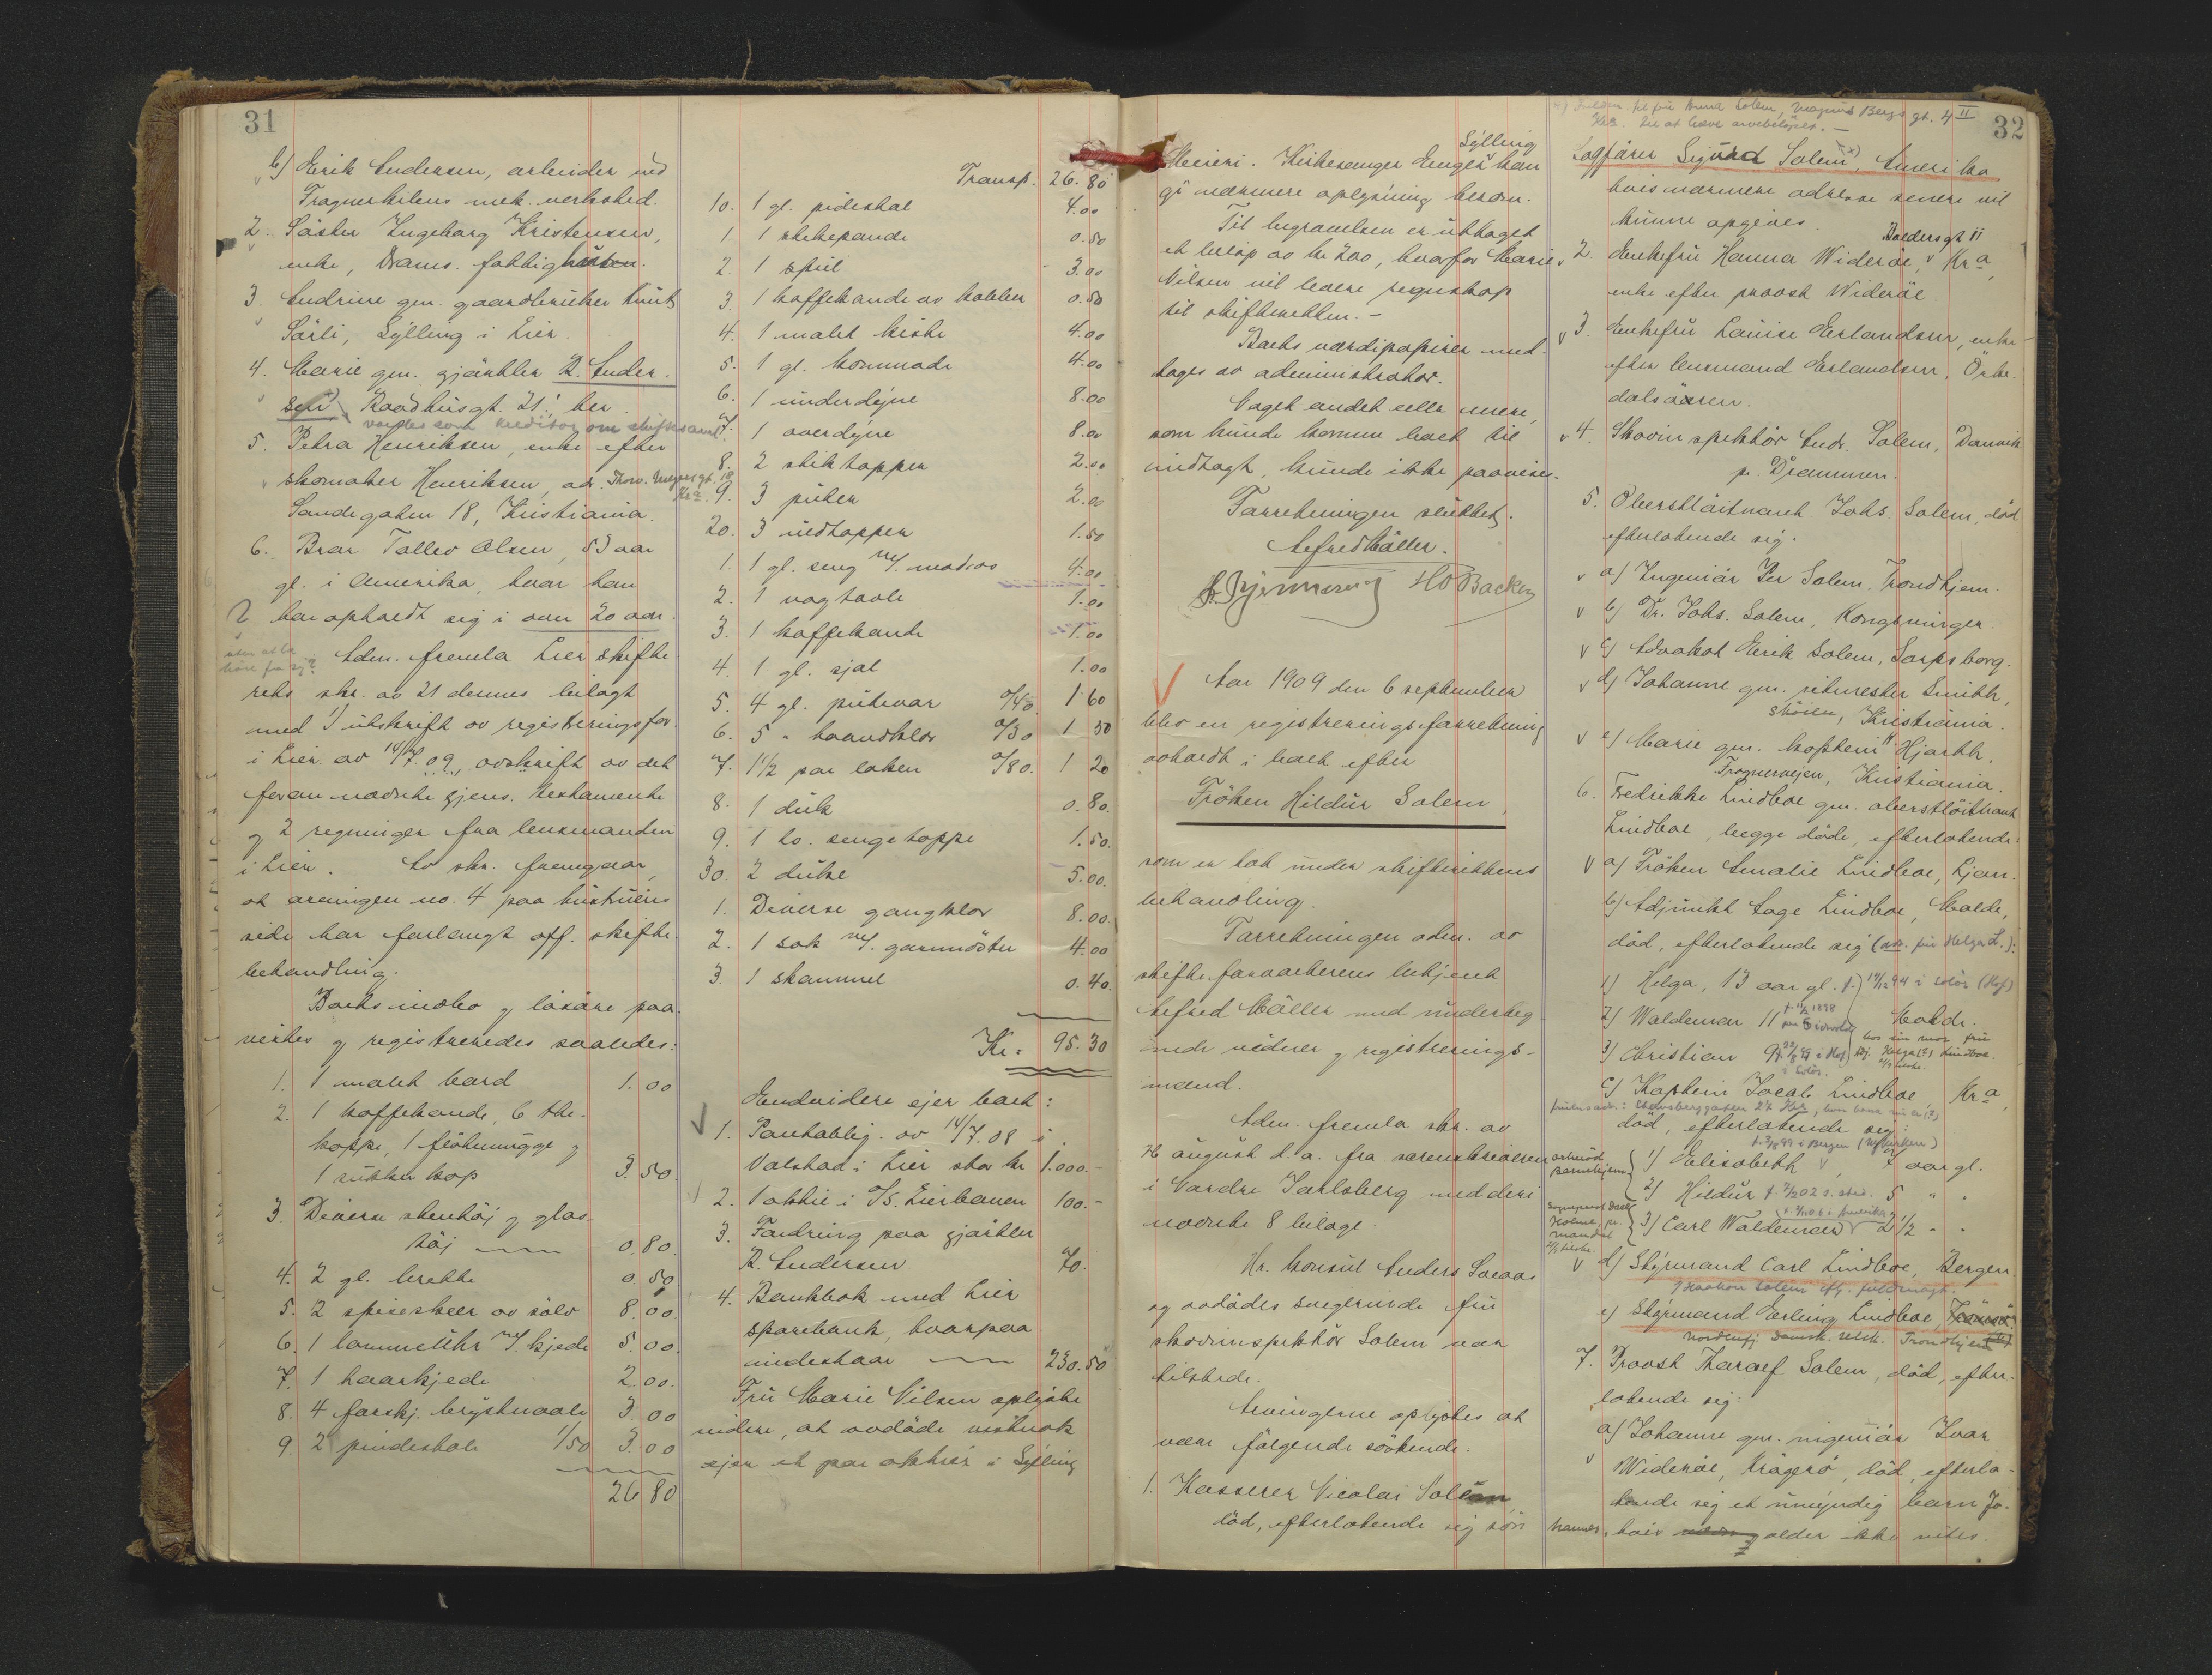 31
b) Erik Andersen, arbeider ved
Frognerkilens mek. verksted.
2. Söster Ingeborg Kristensen,
enke, Drams. fattighus
3. Andrine gm. gaardbruker Knut
Sörli, Sylling i Lier.
4. Marie gm. gjörtler R. Ander-
sen, Raadhusgt. 21, her.
varsles som kreditor om skiftesaml.
5. Petra Henriksen, enke efter
skomaker Henriksen, adr. Thorv. Meyersgt. 18
Kra.
Sandegaten 18, Kristiania.
6. Bror Tollev Olsen, 53 aar
gl. i Amerika, hvor han
har opholdt sig i over 20 aar
uten at la
höre fra sig?
Adm. fremla Lier skifte-
rets skr. av 21 dennes bilagt
med 1) utskrift av registreringsfor.
i Lier av 14/7.09, avskrift av det
foran nævnte gjens. testamente
og 2 regninger fra lensmanden
i Lier. Av skr. fremgaar,
at arvingen no. 4 paa hustruens
side har forlangt off. skifte-
behandling.
Boets indbo og lösöre paa-
vistes og registreredes saaledes:
1. 1 malet bord 1.00
2. 1 kaffekande, 6 the-
kopper, 1 flötemugge og
1 sukkerkop 3.50
3. Diverse stentöj og glas-
töj 0.80
4. 2 gl. brette 0.50
5. 2 spiseskeer av sölv 8.00
6. 1 lommeuhr m/. kjede 5.00
7. 1 haarkjede 2.00
8. 4 forskj. brystnaale 3.00
9. 2 pindestole 1/50 3.00
26 80
Transp. 26.80
10. 1 gl. pidestal 4.00
1. 1 stekepande 0.50
2. 1 speil 3.00
3. 1 kaffekande av kobber 0.50
4. 1 malet kiste 4.00
5. 1 gl. kommode 4.00
6. 1 underdyne 8.00
7. 1 overdyne 8.00
8. 2 stiktepper 2.00
9. 3 puter 2.00
20. 3 uldtepper 1.50
1. 1 gl. seng m/. madras 4.00
2. 1 vogtavle 1.00
3. 1 kaffekande 1.00
4. 1 gl. sjal 1.00
5. 4 gl. putevar 0/40 1 60
6. 5 " haandklær 0/30 1 50
7. 1 1/2 par laken 0/80. 1 20
8. 1 duk 0.80.
9. 1 lo. sengeteppe 1.50.
30. 2 duke 5.00.
1. Diverse gangklær 8.00.
2. 1 sæk m/. garnnöster 4.00
3. 1 skammel 0.40.
Kr. 95.30
Endvidere ejer boet:
1. Pantoblig. av 14/7.08 i
Valstad i Lier stor kr 1.000.-
2. 1 aktie i A/S. Lierbanen 100.-
3. Fordring paa gjörtler
R. Andersen 70.
4. Bankbok med Lier
sparebank, hvorpaa
indestaar 230.50
Fru Marie Nilsen oplyste
videre, at avdöde vistnok
ejer et par aktier i Sylling
Sylling
Meieri. Kirkesanger Enger kan
gi nærmere oplysning herom.
Til begravelsen er uttaget
et belöp av kr 200, hvorfor Marie
Nilsen vil levere regnskap
til skifteretten.-
Boets værdipapirer med-
tages av administrator.
Noget andet eller mere,
som kunde komme boet til
indtægt, kunde ikke paavises.
Forretningen sluttet.
Alfred Möller.
HO Backen
Aar 1909 den 6 september
blev en registreringsforretning
avholdt i boet efter
Fröken Hildur Solem,
som er tat under skifterettens
behandling.
Forretningen adm. av
skifteforvalterens betjent
Alfred Möller med underteg-
nede vidner og registrerings-
mænd.
Adm. fremla skr. av
26 august d.a. fra sorenskriveren
i Nordre Jarlsberg med deri
nævnte 8 bilage.
Hr. konsul Anders Saeaas
og avdödes svigerinde fru
skovinspektör Solem var
tilstede.
Arvingerne oplystes at
være fölgende söskende:
1. Kasserer Nicolai Solem
död, efterlatende sig sön
32
x) fru Anna Solem, Magnus Bergs gt. 4 II
Kra. til at hæve arvebelöpet.-
Sagförer Sigurd Solem x), Amerika
hvis nærmere adresse senere vil
kunne opgives.
Baldersgt 11
2. Enkefru Hanna Wideröe, Kra,
enke efter provst Wideröe.
3. Enkefru Lauise Erlandsen, enke
efter lensmand Erlandsen, Örke-
dalsören.
4. Skovinspektör Andr. Solem, Danvik
p. Drammen.
5. Oberstlöitnant Johs. Solem, död
efterlatende sig.
a) Ingeniör Per Solem. Trondhjem.
b) Dr. Johs. Solem, Kongsvinger.
c) Advokat Erik Solem, Sarpsborg.
d) Johanne gm. ritmester Smith,
Sköien, Kristiania.
e) Marie gm. kaptein Hjorth,
Frognerveien, Kristiania.
6. Fredrikke Lindboe gm. oberstlöitnant
Lindboe, begge döde, efterlatende:
a) Fröken Amalie Lindboe, Ljan.
b) Adjunkt Aage Lindboe, Molde,
död, efterlatende sig (adr. fru Helga L.):
1) Helga, 13 aar gl. f. 14/12 94 i Solör (Hof)
2) Waldemar 11 f. 11/2 1898 Molde.
3) Christian 9 hos sin mor fru
adj. Helga (?) Lindboe.
i Solör.
c) Kaptein Jacob Lindboe Kra,
död, efterlatende sig:
1) Elisabeth aar gl.
2) Hildur f. 7/2 02 s. sted. 5 " "
3) Carl Waldemar 2 1/2 " "
d) Styrmand Carl Lindboe, Bergen.
Haakon Solem iflg. fuldmagt.
e) Styrmand Erling Lindboe,
Nordenfj. Damsk. selsk. Trondhjem
7. Provst Tharalf Solem, död, efter-
latende sig:
a) Johanne gm. ingeniör Ivar
Wideröe, Kragerö, död, efterla-
tende sig et umyndig barn Jo-
hannes, hvis alder ikke vites.